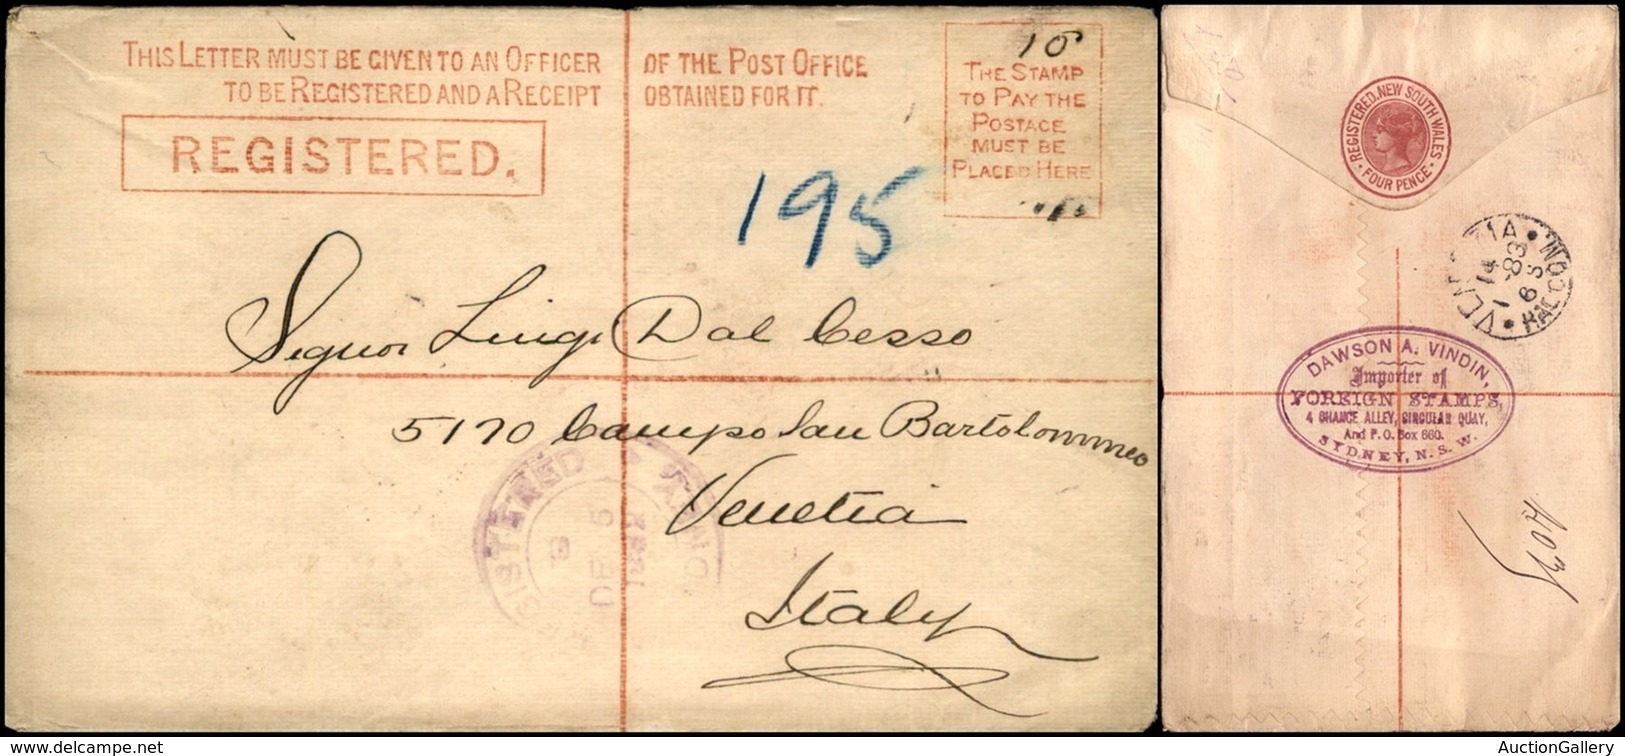 THIS LETTER MUST BE GIVEN TO AN OFFICER OF THE POST OFFICE
TO BE REGISTERED AND A RECEIPT OBTAINED FOR IT.
REGISTERED.
10
THE STAMP
TO PAY THE
POSTAGE
MUST BE
PLACED HERE
195
Signor Luigi Dal Cesso
5170 Campo San Bartolommeo
Venetia
Italy
REGISTERED
DE 5
REGISTERED. NEW SOUTH WALES
FOUR PENCE
14 1
83
6 S
RACCOM
DAWSON A. VINDIN,
Importer of
FOREIGN STAMPS,
4 CHANCE ALLEY, CIRCULAR QUAY,
And P.O. Box 660.
SYDNEY, N. S. W.
delcampe.net
AuctionGallery